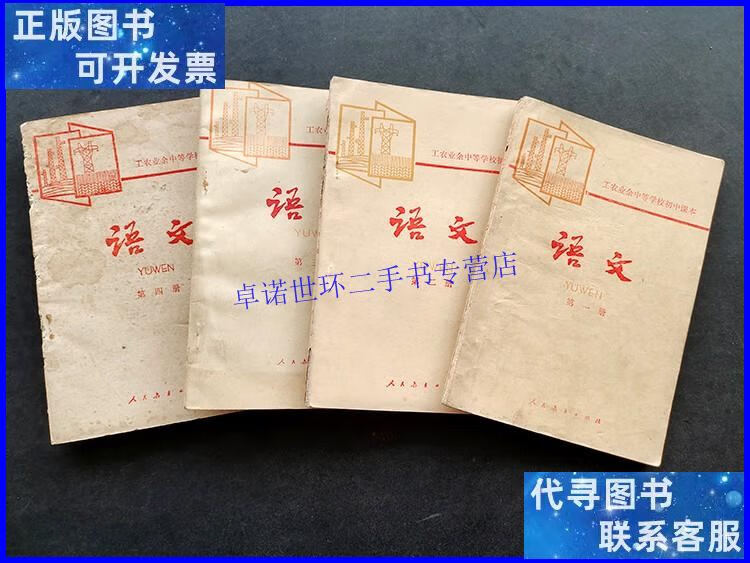 正版图书
可开发票
工农业余中等学校
语文
YUWEN
第四册
人民教育出版
工农业
语
YUW
第
人民教育
工农业余中等学校初
语文
第二册
人民教育出版
工农业余中等学校初中课本
语文
YUWEN
第一册
人民教育出版社
卓诺世环二手书专营店
代寻图书
联系客服